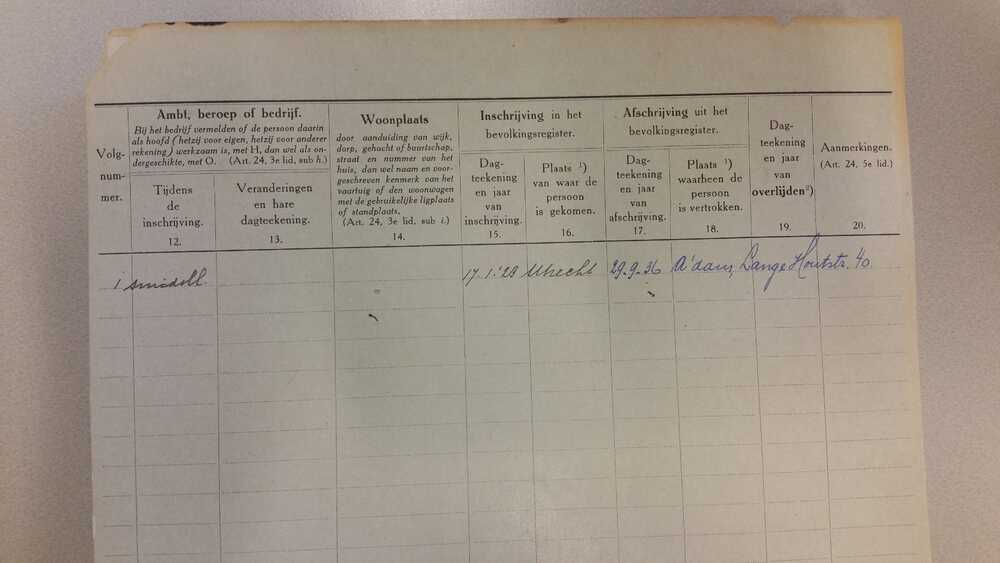 Volg-
num-
mer.
Ambt, beroep of bedrijf.
Bij het bedrijf vermelden of de persoon daarin
als hoofd (hetzij voor eigen, hetzij voor anderer
rekening) werkzaam is, met H, dan wel als on-
dergeschikte, met O. (Art. 24, 3e lid, sub h.)
Tijdens
de
inschrijving.
12.
Veranderingen
en hare
dagteekening.
13.
Woonplaats
door aanduiding van wijk,
dorp, gehucht of buurtschap,
straat en nummer van het
huis, dan wel naam en voor-
geschreven kenmerk van het
vaartuig of den woonwagen
met de gebruikelijke ligplaats
of standplaats.
(Art. 24, 3e lid, sub i.)
14.
Inschrijving in het
bevolkingsregister.
Dag-
teekening
en jaar
van
inschrijving.
15.
Plaats ¹)
van waar de
persoon
is gekomen.
16.
Afschrijving uit het
bevolkingsregister.
Dag-
teekening
en jaar
van
afschrijving.
17.
Plaats ¹)
waarheen de
persoon
is vertrokken.
18.
Dag-
teekening
en jaar
van
overlijden²).
19.
Aanmerkingen.
(Art. 24, 5e lid.)
20.
1 17.1.'23 Utrecht 29.9.36 A'dam, Lange Houtstr. 40.